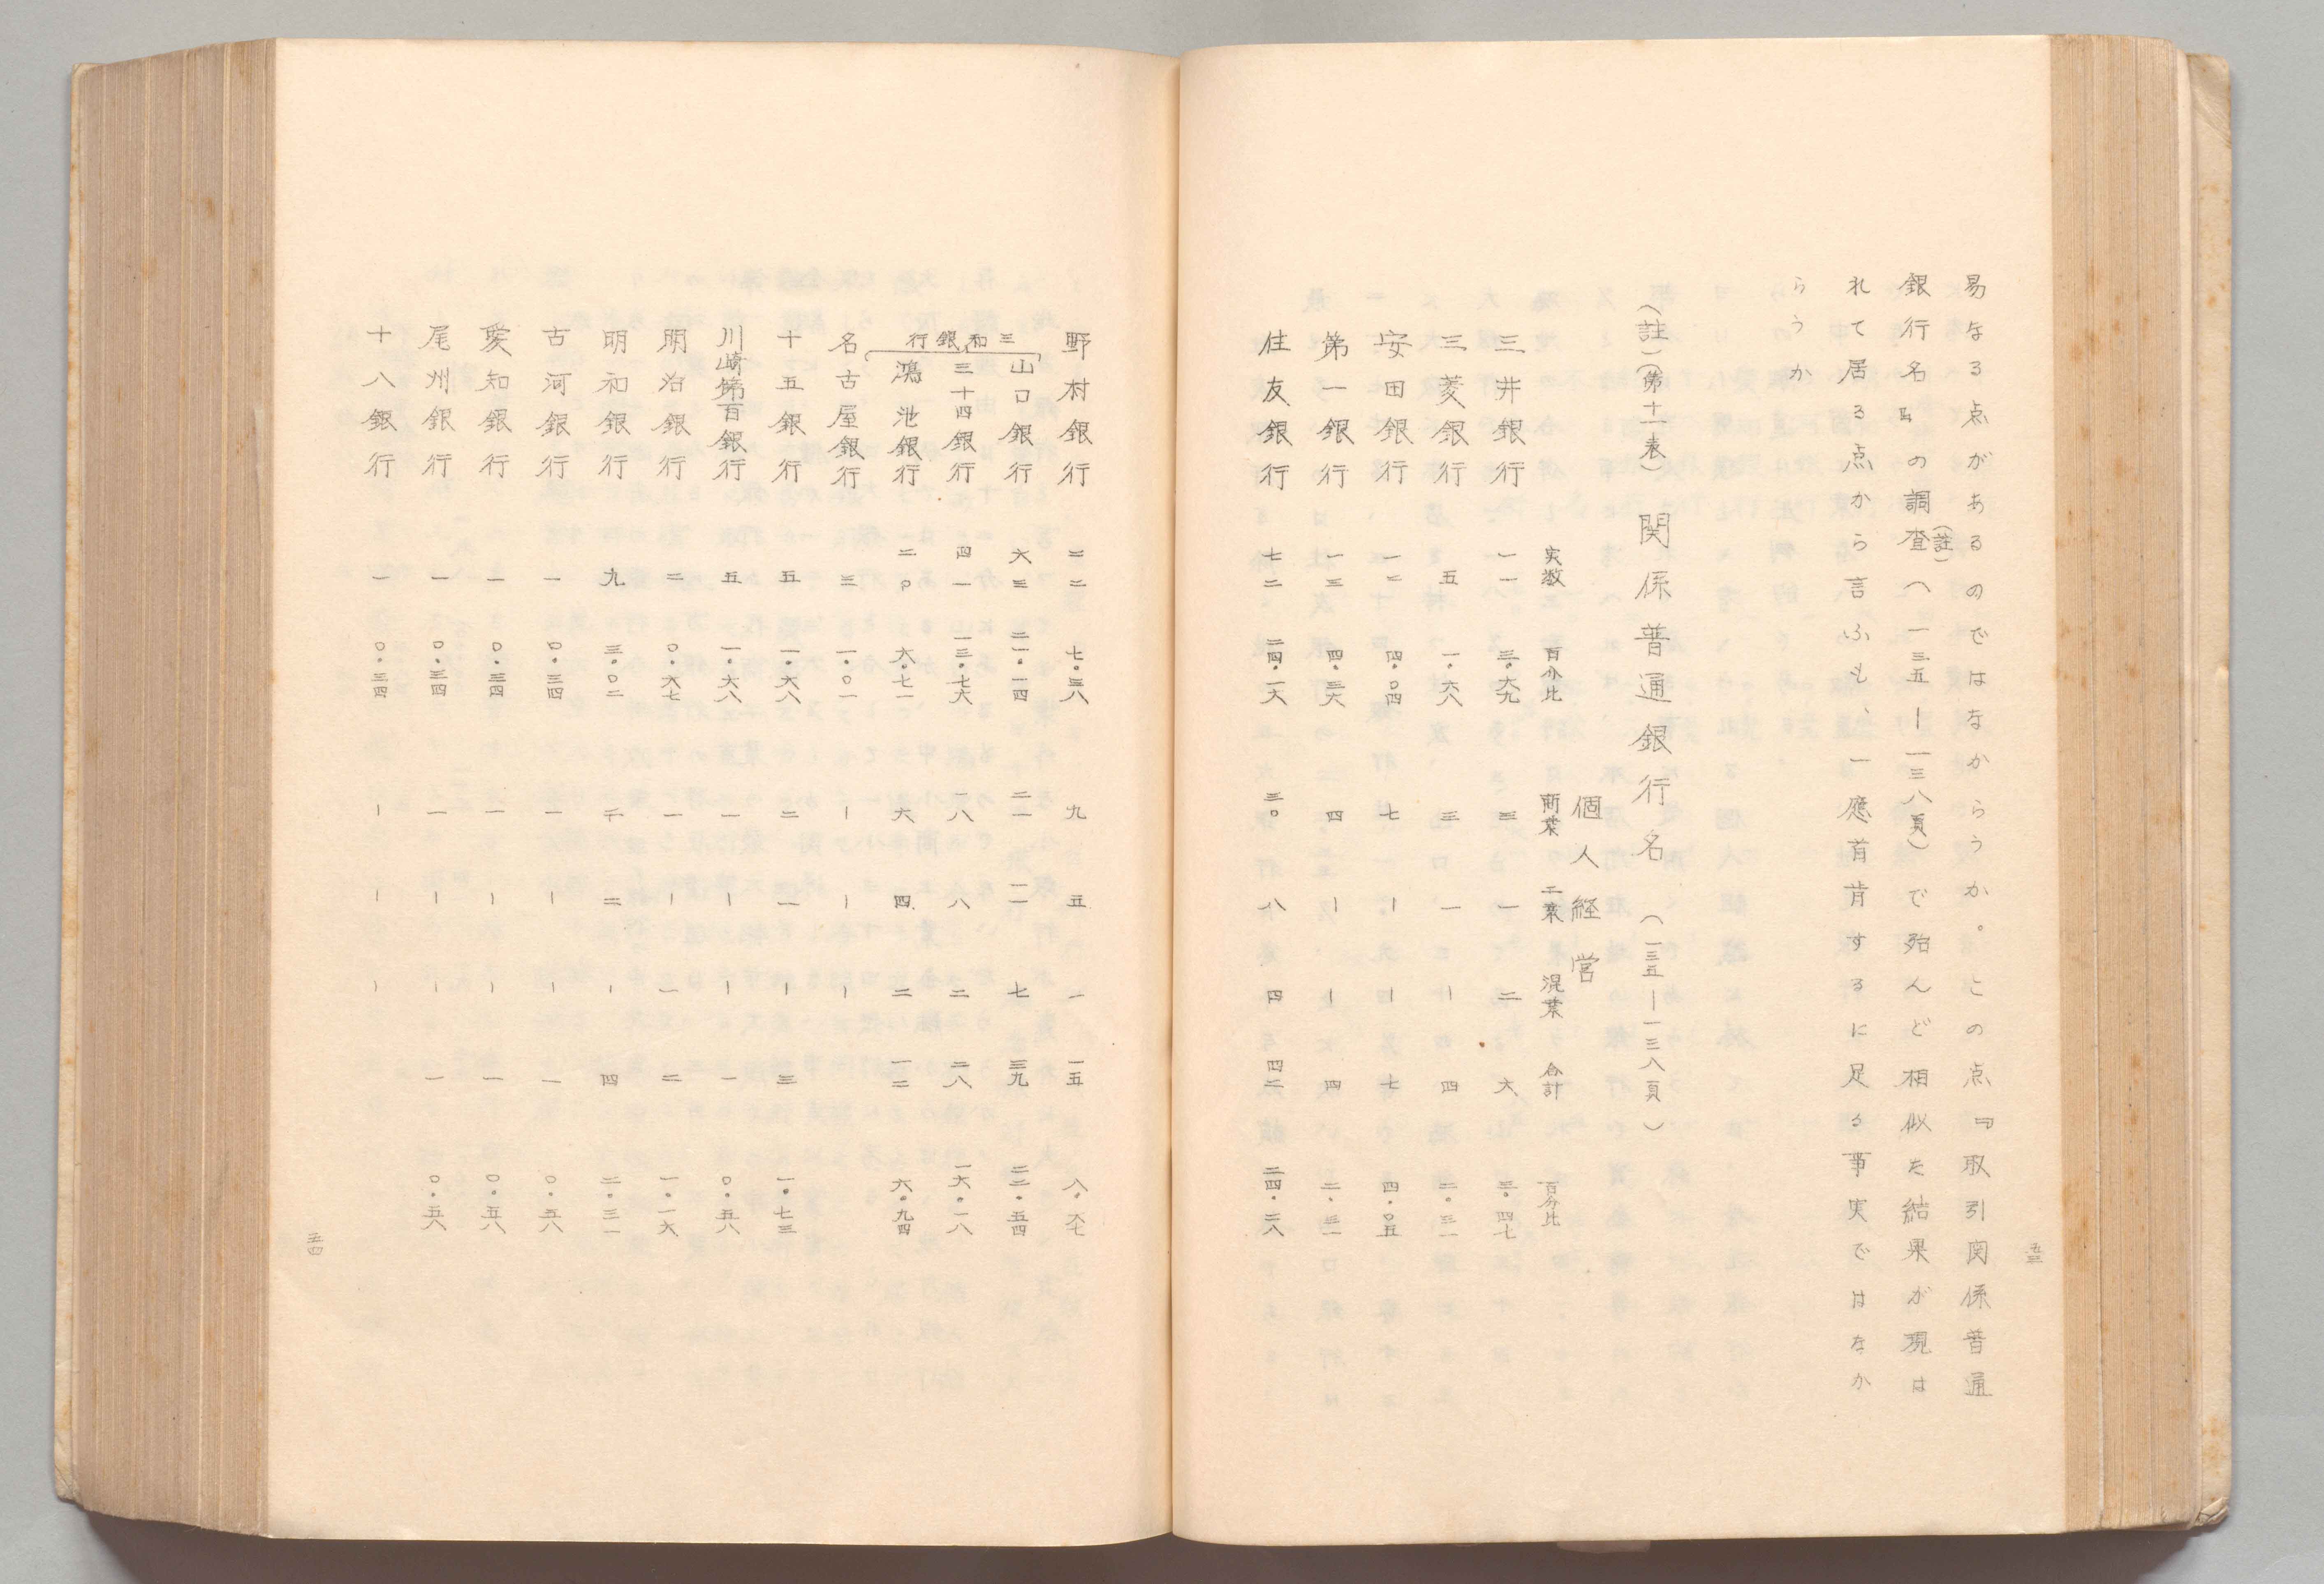 五三
易なる点があるのではなからうか。この点『取引関係普通
銀行名』の調査(註)(一三五―一三八頁)で殆んど相似た結果が現は
れて居る点から言ふも、一應首肯するに足る事実ではなか
らうか
(註)(第十一表) 関係普通銀行名 (一三五―一三八頁)
個人経営
実数 百分比 商業 工業 混業 合計 百分比
三井銀行 一一 三・六九 三 一 二 六 三・四七
三菱銀行 五 一・六八 三 一 ― 四 二・三一
安田銀行 一二 四・〇四 七 ― ― 七 四・〇五
第一銀行 一三 四・三六 四 ― ― 四 二・三一
住友銀行 七二 二四・一六 三〇 八 四 四二 二四・二八
野村銀行 二二 七・三八 九 五 一 一五 八・六七
三和銀行
山口銀行 六三 二一・一四 二一 一一 七 三九 二二・五四
三十四銀行 四一 一三・七六 一八 八 二 二八 一六・一八
鴻池銀行 二〇 六・七一 六 四 二 一二 六・九四
名古屋銀行 三 一・〇一 ― ― ―
十五銀行 五 一・六八 二 一 ― 三 一・七三
川崎第百銀行 五 一・六八 一 ― ― 一 〇・五八
明治銀行 二 〇・六七 一 ― 一 二 一・一六
明和銀行 九 三・〇二 二 二 ― 四 二・三一
古河銀行 一 〇・三四 一 ― ― 一 〇・五八
愛知銀行 一 〇・三四 一 ― ― 一 〇・五八
尾州銀行 一 〇・三四 一 ― ― 一 〇・五八
十八銀行 一 〇・三四 ― ― ―
五四